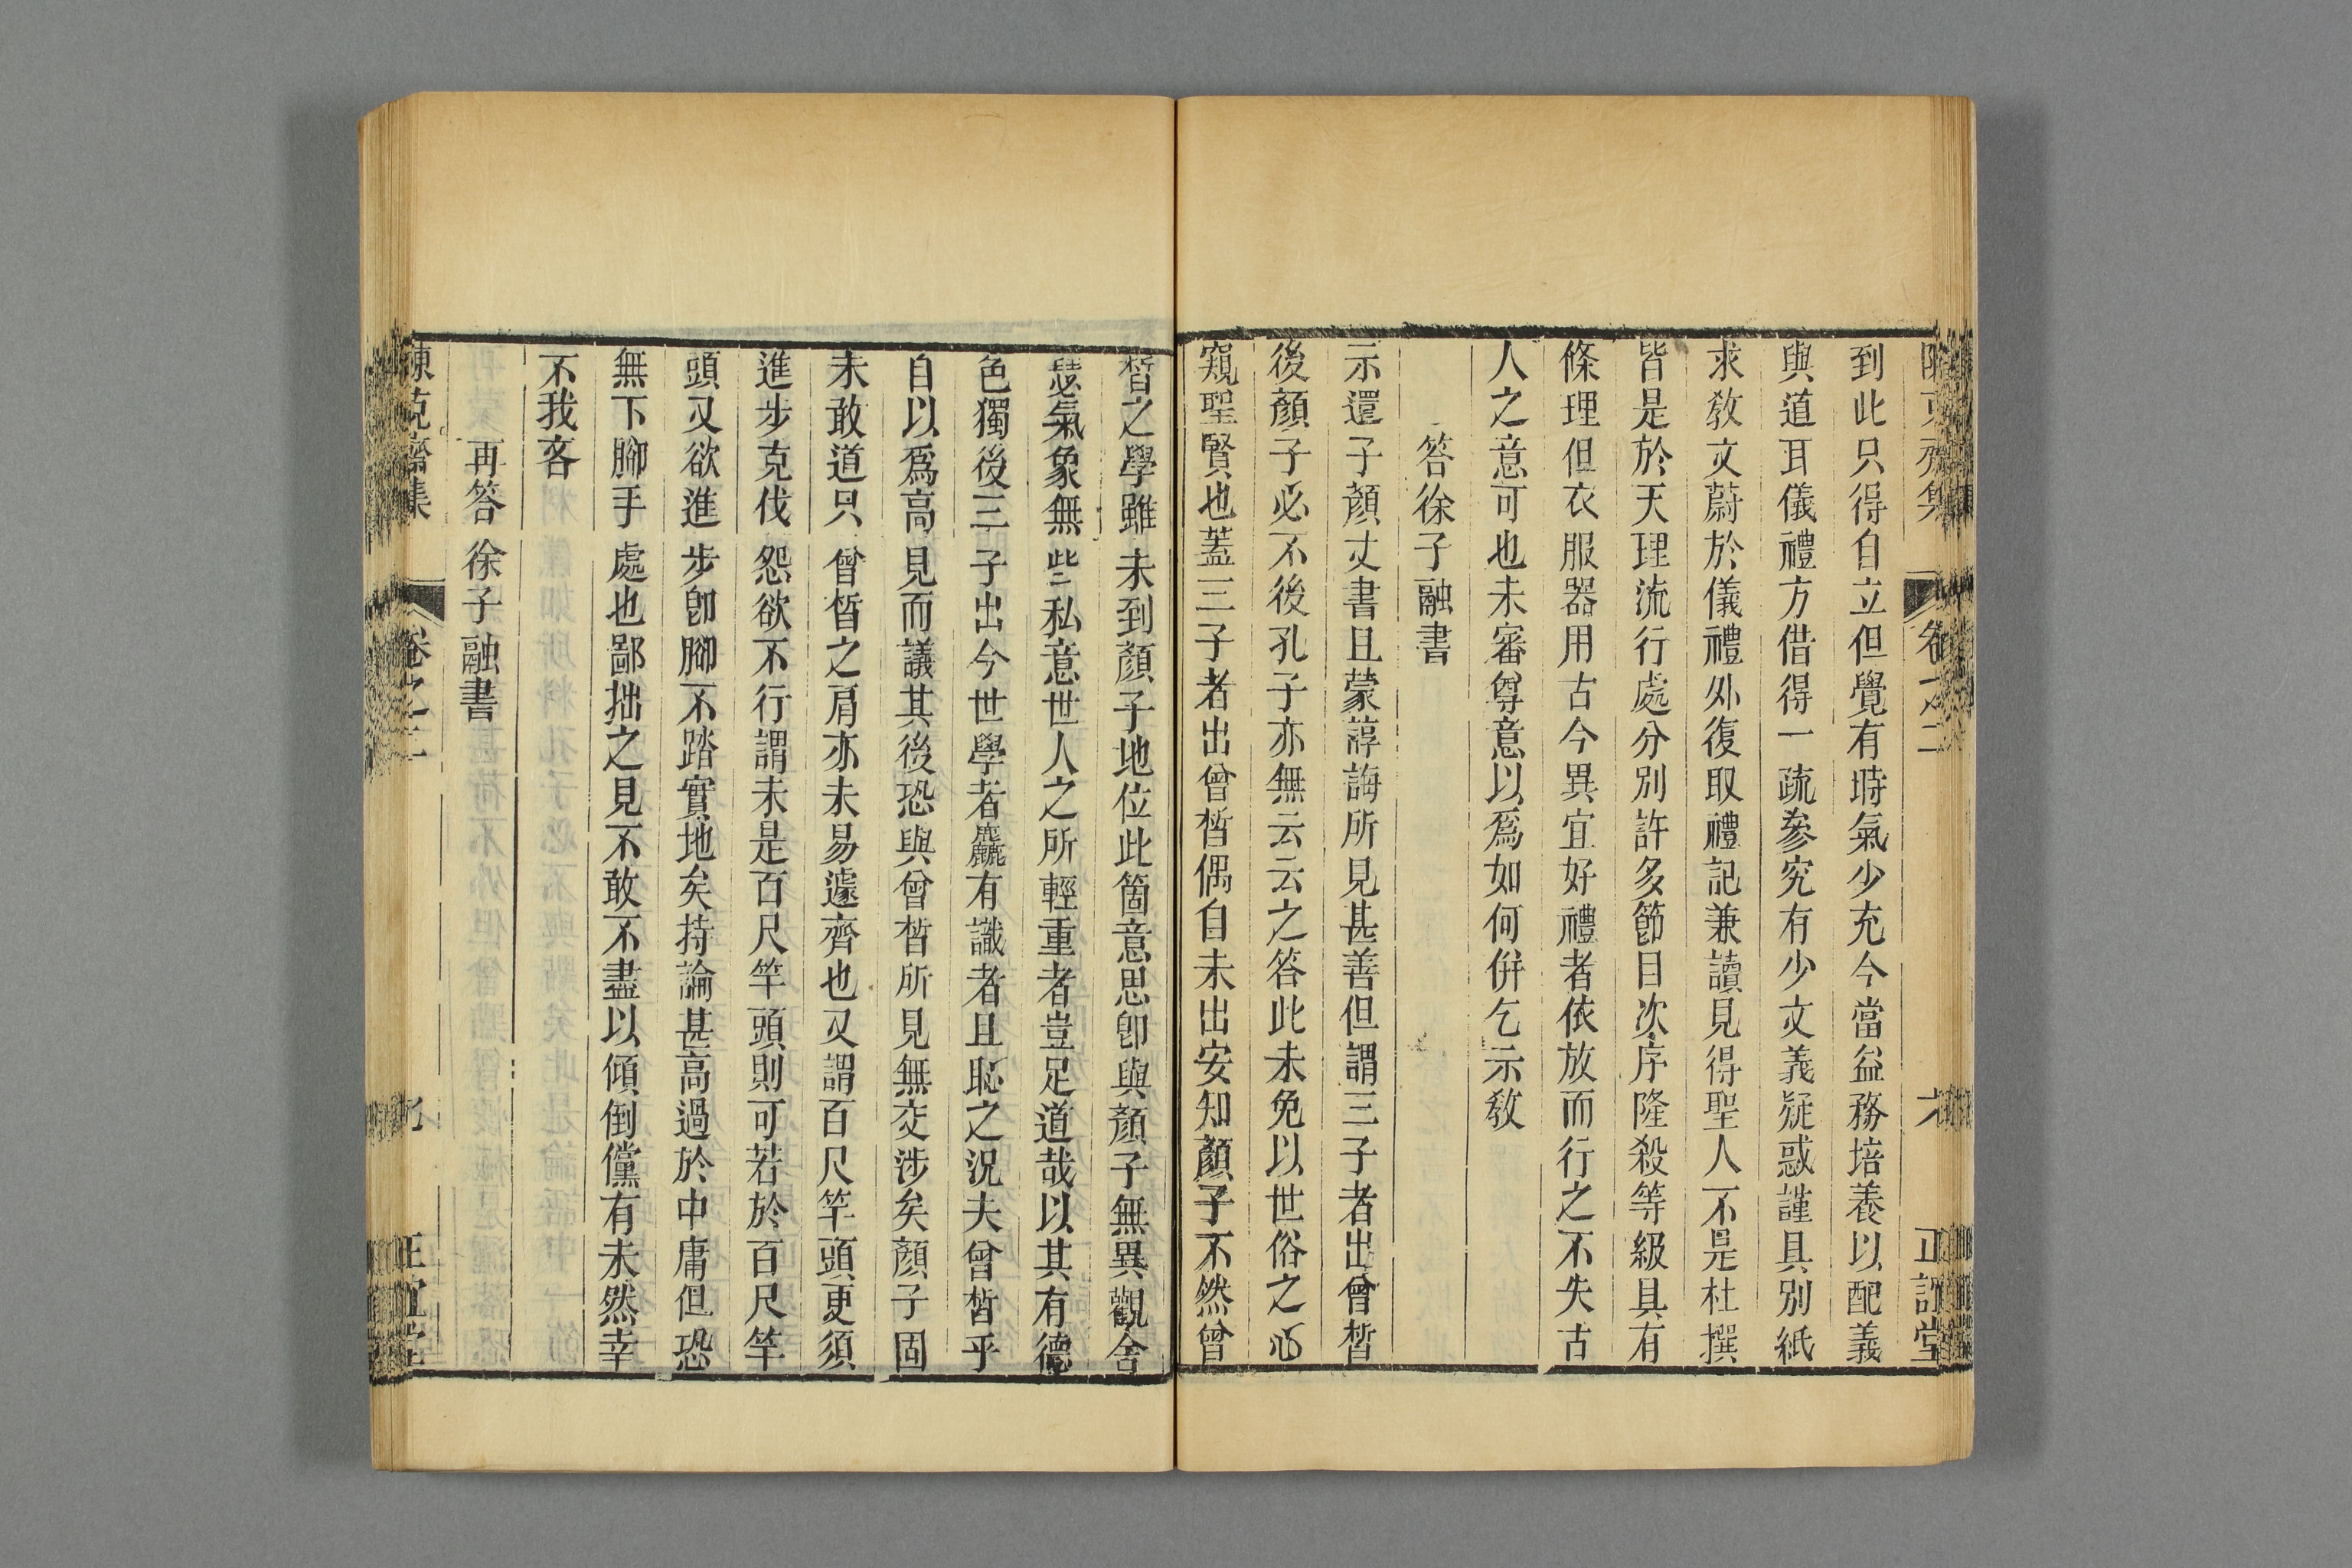 到此只得自立但覺有時氣少充今當益務培養以配義
與道耳儀禮方借得一疏參究有少文義疑惑謹具別紙
求教文蔚於儀禮外復取禮記兼讀見得聖人不是杜撰
皆是於天理流行處分別許多節目次序隆殺等級具有
條理但衣服器用古今異宜好禮者依放而行之不失古
人之意可也未審尊意以爲如何併乞示教
答徐子融書
示還子顏丈書且蒙諄誨所見甚善但謂三子者出曾晳
後顏子必不後孔子亦無云云之答此未免以世俗之心
窺聖賢也蓋三子者出曾晳偶自未出安知顏子不然曾
晳之學雖未到顏子地位此箇意思卽與顏子無異觀舍
瑟氣象無些私意世人之所輕重者豈足道哉以其有德
色獨後三子出今世學者麤有識者且恥之況夫曾晳乎
自以爲高見而議其後恐與曾晳所見無交涉矣顏子固
未敢道只曾晳之肩亦未易遽齊也又謂百尺竿頭更須
進步克伐怨欲不行謂未是百尺竿頭則可若於百尺竿
頭又欲進步卽腳不踏實地矣持論甚高過於中庸但恐
無下腳手處也鄙拙之見不敢不盡以傾倒儻有未然幸
不我吝
再答徐子融書
陳克齋集 卷之二 九 正誼堂